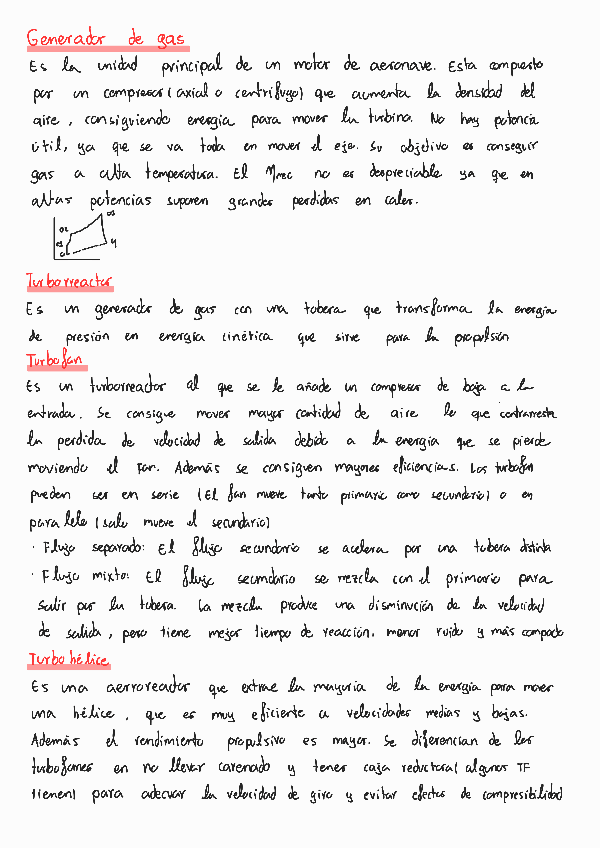 Generador de gas
Es la unidad principal de un motor de aeronave. Esta compuesto
por un compresor (axial o centrífugo) que aumenta la densidad del
aire, consiguiendo energía para mover la turbina. No hay potencia
útil, ya que se va toda en mover el eje. Su objetivo es conseguir
gas a alta temperatura. El ηmec no es despreciable ya que en
altas potencias suponen grandes perdidas en calor.
Turborreactor
Es un generador de gas con una tobera que transforma la energía
de presión en energía cinética que sirve para la propulsión
Turbofan
Es un turborreactor al que se le añade un compresor de baja a la
entrada. Se consigue mover mayor cantidad de aire lo que contrarresta
la perdida de velocidad de salida debido a la energía que se pierde
moviendo el Fan. Además se consiguen mayores eficiencias. Los turbofan
pueden ser en serie (El fan mueve tanto primario como secundario) o en
paralelo (solo mueve el secundario)
· Flujo separado: El flujo secundario se acelera por una tobera distinta
· Flujo mixto: El flujo secundario se mezcla con el primario para
salir por la tobera. La mezcla produce una disminución de la velocidad
de salida, pero tiene mejor tiempo de reacción, menor ruido y más compacto
Turbohélice
Es una aerroreactor que extrae la mayoria de la energía para mover
una hélice, que es muy eficiente a velocidades medias y bajas.
Además el rendimiento propulsivo es mayor. Se diferencian de los
turbofanes en no llevar carenado y tener caja reductora (algunos TF
tienen) para adecuar la velocidad de giro y evitar efectos de compresibilidad